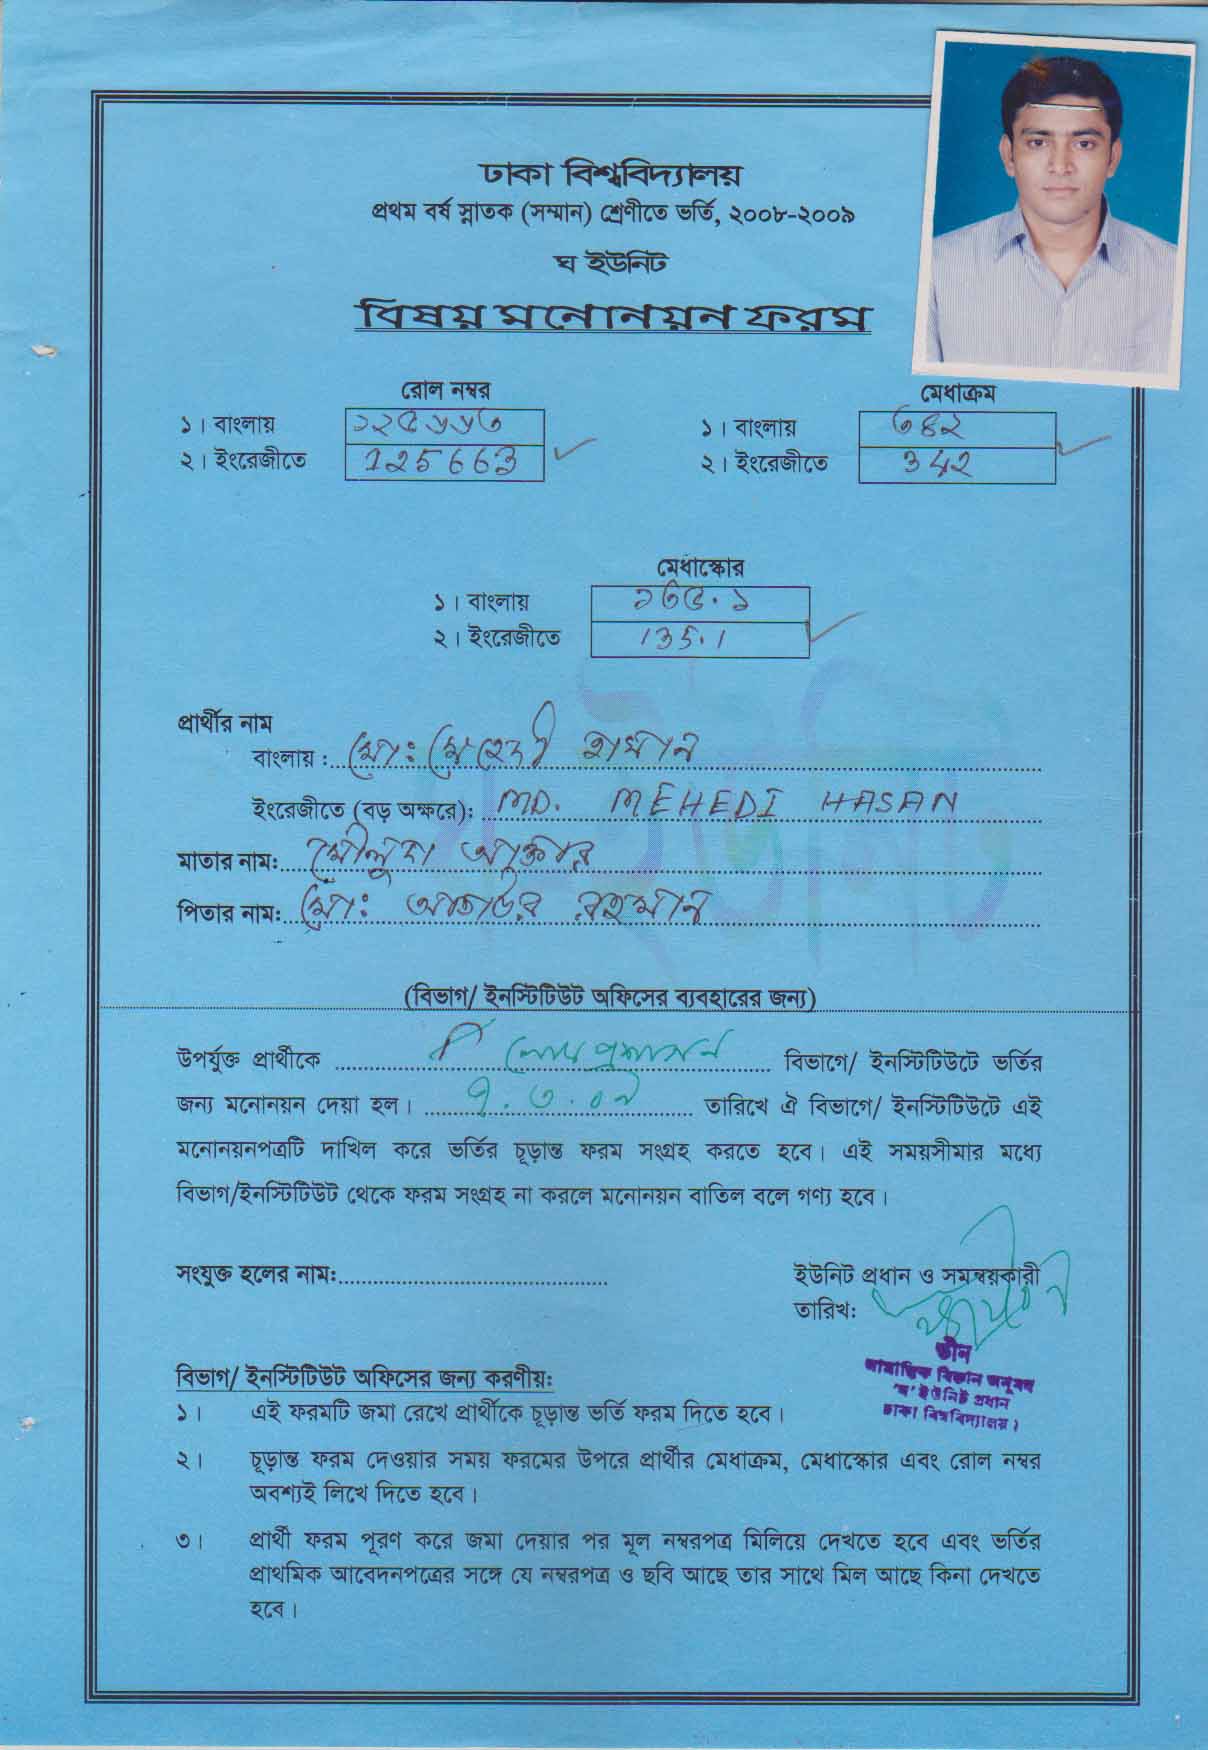 ঢাকা বিশ্ববিদ্যালয়
প্রথম বর্ষ স্নাতক (সম্মান) শ্রেণীতে ভর্তি, ২০০৮-২০০৯
ঘ ইউনিট
বিষয় মনোনয়ন ফরম
রোল নম্বর
১। বাংলায় ১২৫৬৬৩
২। ইংরেজীতে 125663
মেধাক্রম
১। বাংলায় ৩৪২
২। ইংরেজীতে 342
মেধাস্কোর
১। বাংলায় ১৩৫.১
২। ইংরেজীতে 135.1
প্রার্থীর নাম
বাংলায় : মোঃ মেহেদী হাসান
ইংরেজীতে (বড় অক্ষরে): MD. MEHEDI HASAN
মাতার নাম: আক্তার
পিতার নাম: মোঃ আতাউর রহমান
(বিভাগ/ ইনস্টিটিউট অফিসের ব্যবহারের জন্য)
উপর্যুক্ত প্রার্থীকে লোক প্রশাসন বিভাগে/ ইনস্টিটিউটে ভর্তির
জন্য মনোনয়ন দেয়া হল। ৭.৩.০৯ তারিখে ঐ বিভাগে/ ইনস্টিটিউটে এই
মনোনয়নপত্রটি দাখিল করে ভর্তির চূড়ান্ত ফরম সংগ্রহ করতে হবে। এই সময়সীমার মধ্যে
বিভাগ/ইনস্টিটিউট থেকে ফরম সংগ্রহ না করলে মনোনয়ন বাতিল বলে গণ্য হবে।
সংযুক্ত হলের নাম:
ইউনিট প্রধান ও সমন্বয়কারী
তারিখ:
ডীন
সামাজিক বিজ্ঞান অনুষদ
'ঘ' ইউনিট প্রধান
ঢাকা বিশ্ববিদ্যালয়।
বিভাগ/ ইনস্টিটিউট অফিসের জন্য করণীয়:
১। এই ফরমটি জমা রেখে প্রার্থীকে চূড়ান্ত ভর্তি ফরম দিতে হবে।
২। চূড়ান্ত ফরম দেওয়ার সময় ফরমের উপরে প্রার্থীর মেধাক্রম, মেধাস্কোর এবং রোল নম্বর
অবশ্যই লিখে দিতে হবে।
৩। প্রার্থী ফরম পূরণ করে জমা দেয়ার পর মূল নম্বরপত্র মিলিয়ে দেখতে হবে এবং ভর্তির
প্রাথমিক আবেদনপত্রের সঙ্গে যে নম্বরপত্র ও ছবি আছে তার সাথে মিল আছে কিনা দেখতে
হবে।